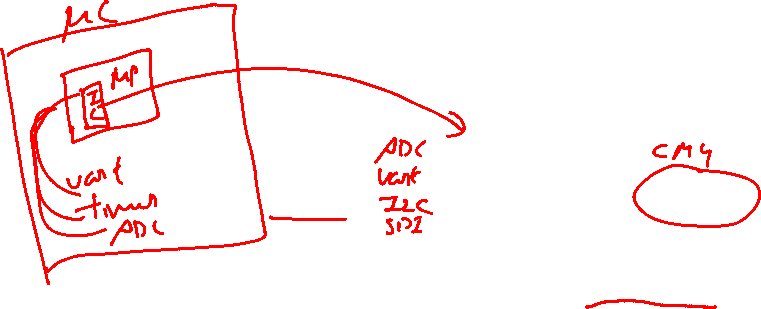 μC
μP
IC
uart
timer
ADC
ADC
uart
I2C
SPI
CM4